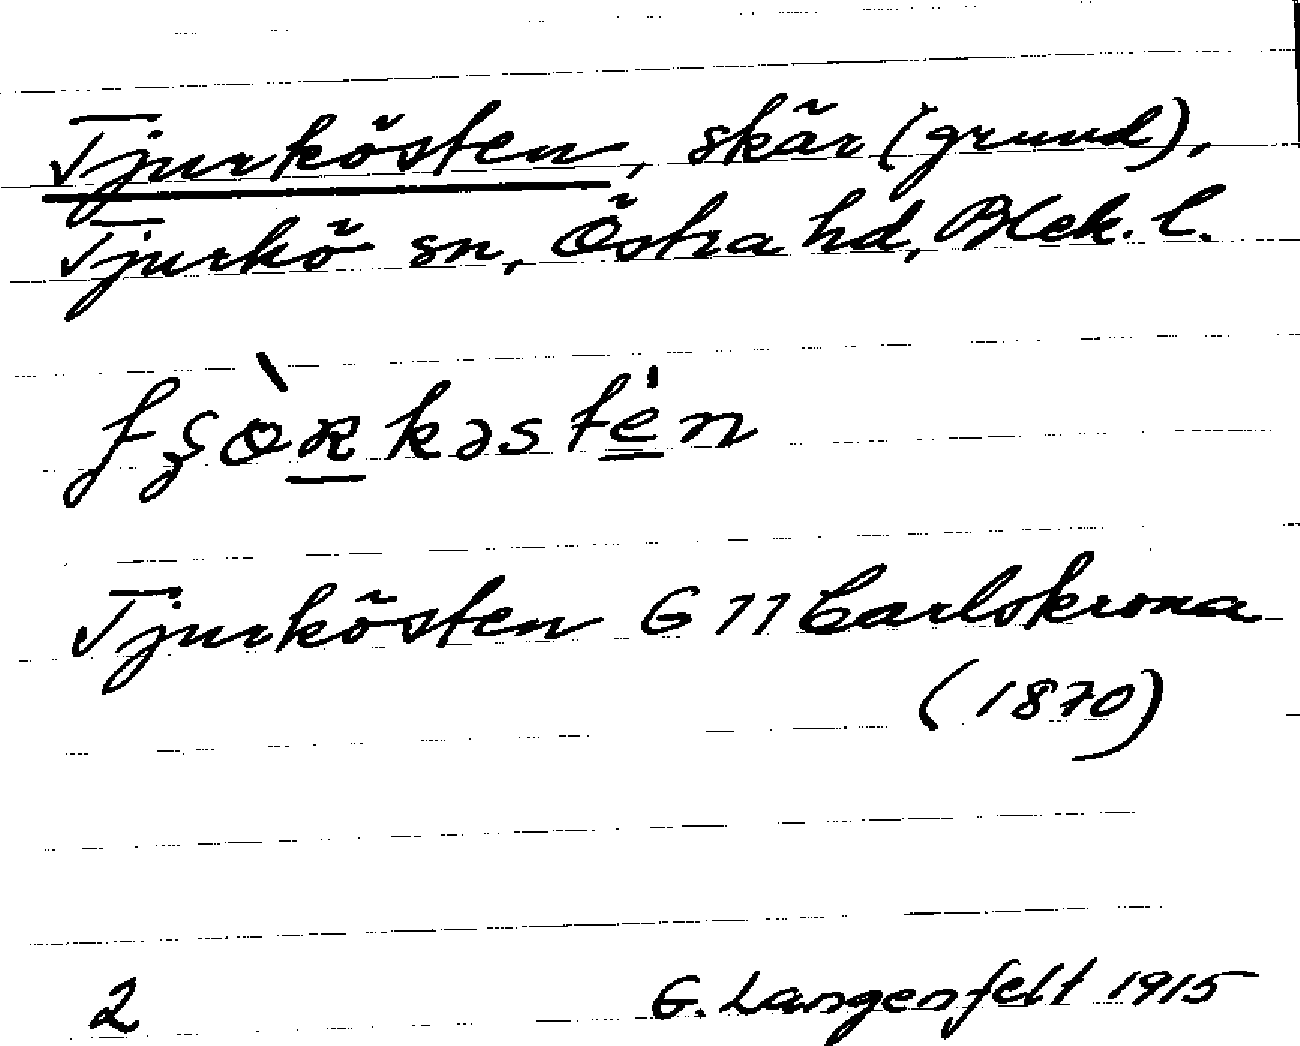 Tjurkösten, skär (grund),
Tjurkö sn, Östra hd, Blek. l.
Tjurkösten G 11 Carlskrona
(1870)
2 G. Langenfelt 1915